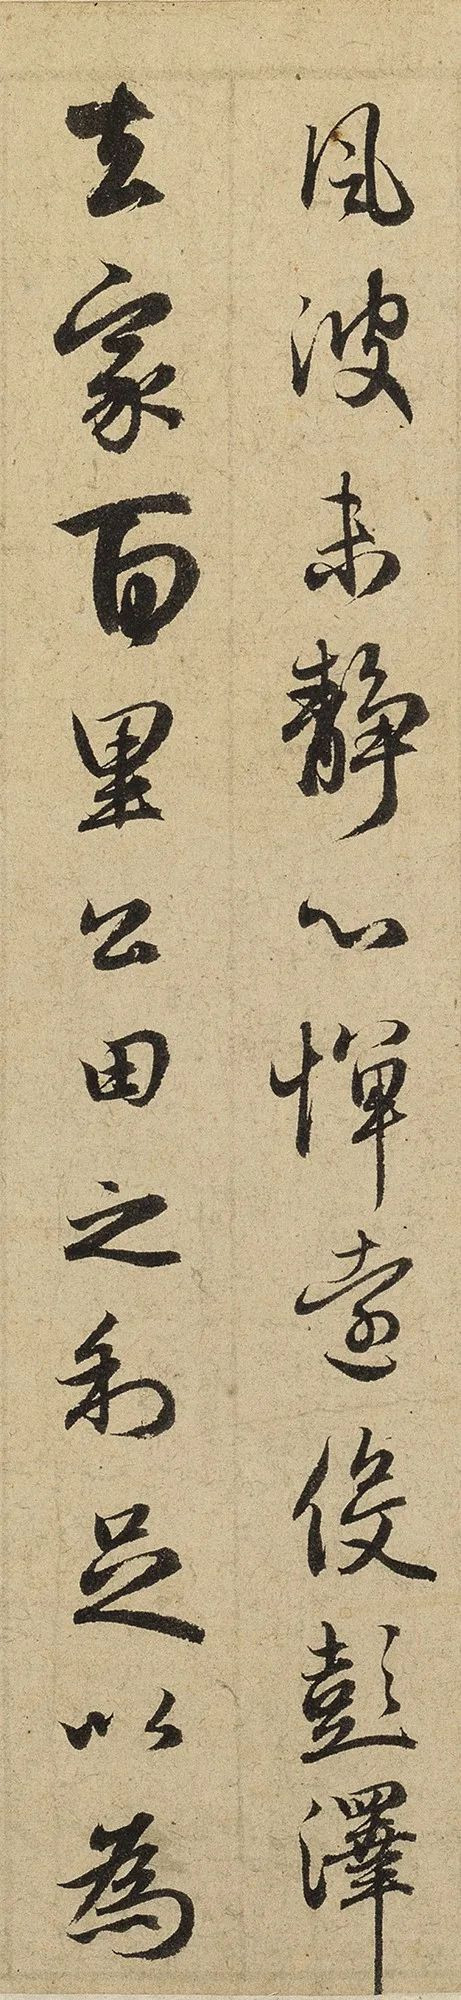 風波未靜心憚遠役彭澤
去家百里公田之利足以為